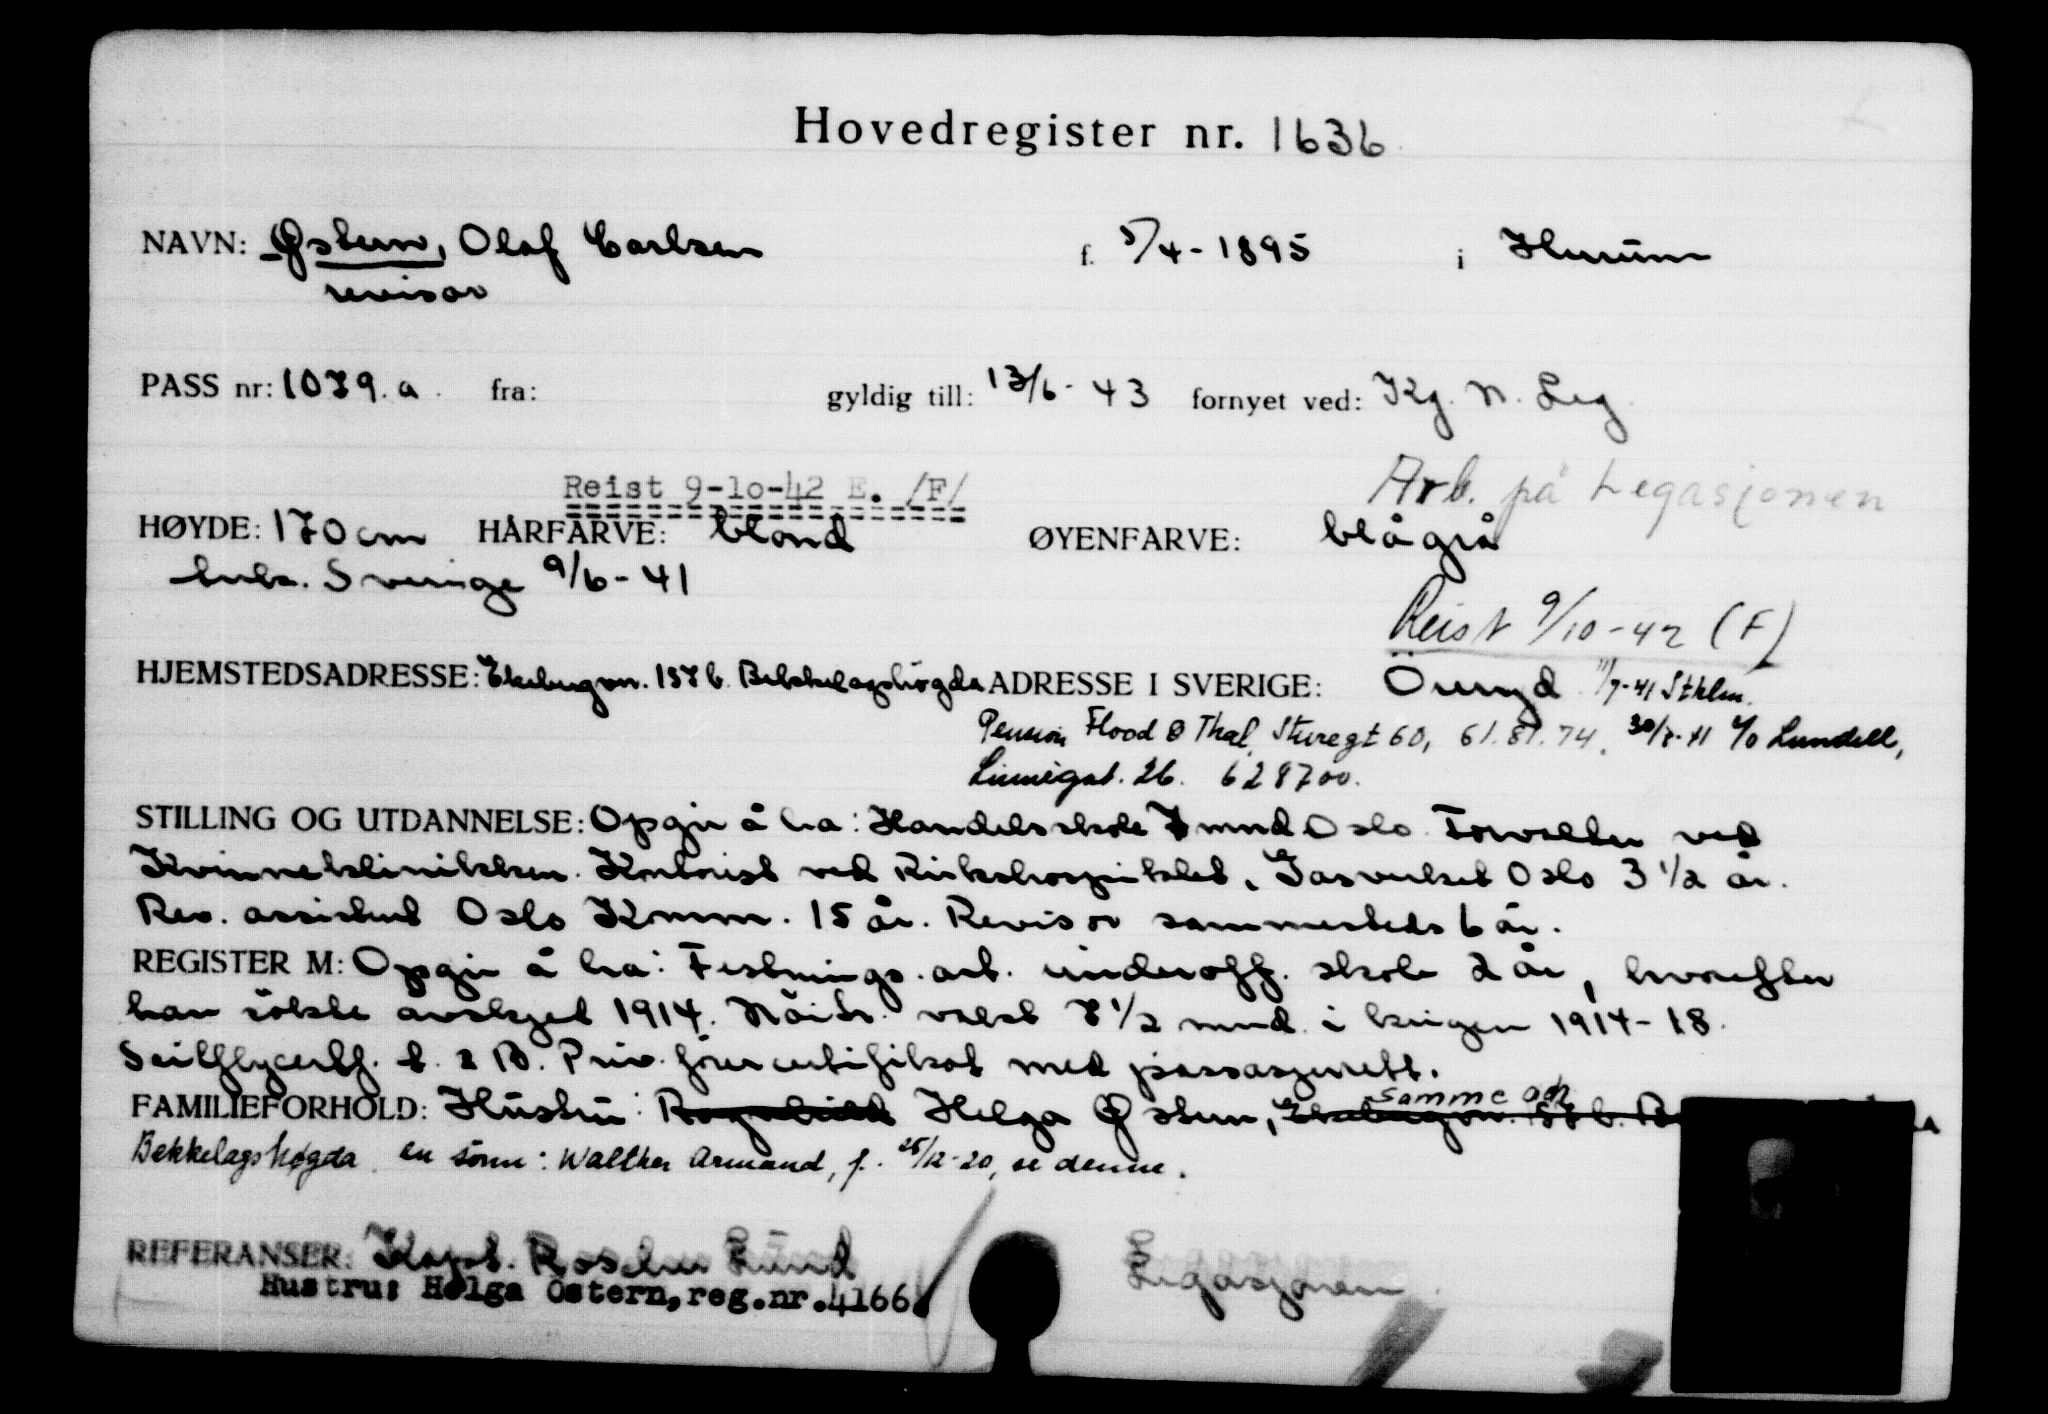 Hovedregister nr. 1636
NAVN: Østern, Olof Carlsen f. 5/4-1895 i Hurum
revisor
PASS nr: 1039.a. fra: gyldig till: 13/6-43 fornyet ved: Kg. N. Leg.
Reist 9-10-42 E. /F/ Arb. på Legasjonen
HØYDE: 170 cm HÅRFARVE: blond ØYENFARVE: blågrå
Sverige 9/6-41
Reist 9/10-42 (F)
HJEMSTEDSADRESSE: Ekebergvn. 137 b. Bekkelagshögda ADRESSE I SVERIGE: Öreryd 11/7-41 Sthlm.
Pension Flood & Thal, Sturegt 60, 61.81.74, 30/7-41 c/o Lundell,
Linnégat. 26. 628700.
STILLING OG UTDANNELSE: Opgir å ha: Handelsskole 7 mnd Oslo. Forvalter ved
Kvinneklinikken. Kontorist ved Rikshospitalet, Gasverket Oslo 3 1/2 år.
Rev. assistent Oslo Komm. 15 år. Revisor sammesteds 6 år.
REGISTER M: Opgir å ha: Festnings.art. underoff. skole 2 år, hvorefter
han sökte avskjed 1914. Nöitr. vakt 7 1/2 mnd. i krigen 1914-18.
Seilflycertf. t. 2 B. Priv. förercertifikat med passasjerrett.
FAMILIEFORHOLD: Hustru: Ragnhild Helga Østern, Ekebergvn. 137 b. samme adr.
Bekkelagshøgda. en sönn: Walther Armand, f. 25/12-20, se denne.
REFERANSER: Kapt. Roscher Lund Legasjonen.
Hustru: Helga Østern, reg.nr.4166